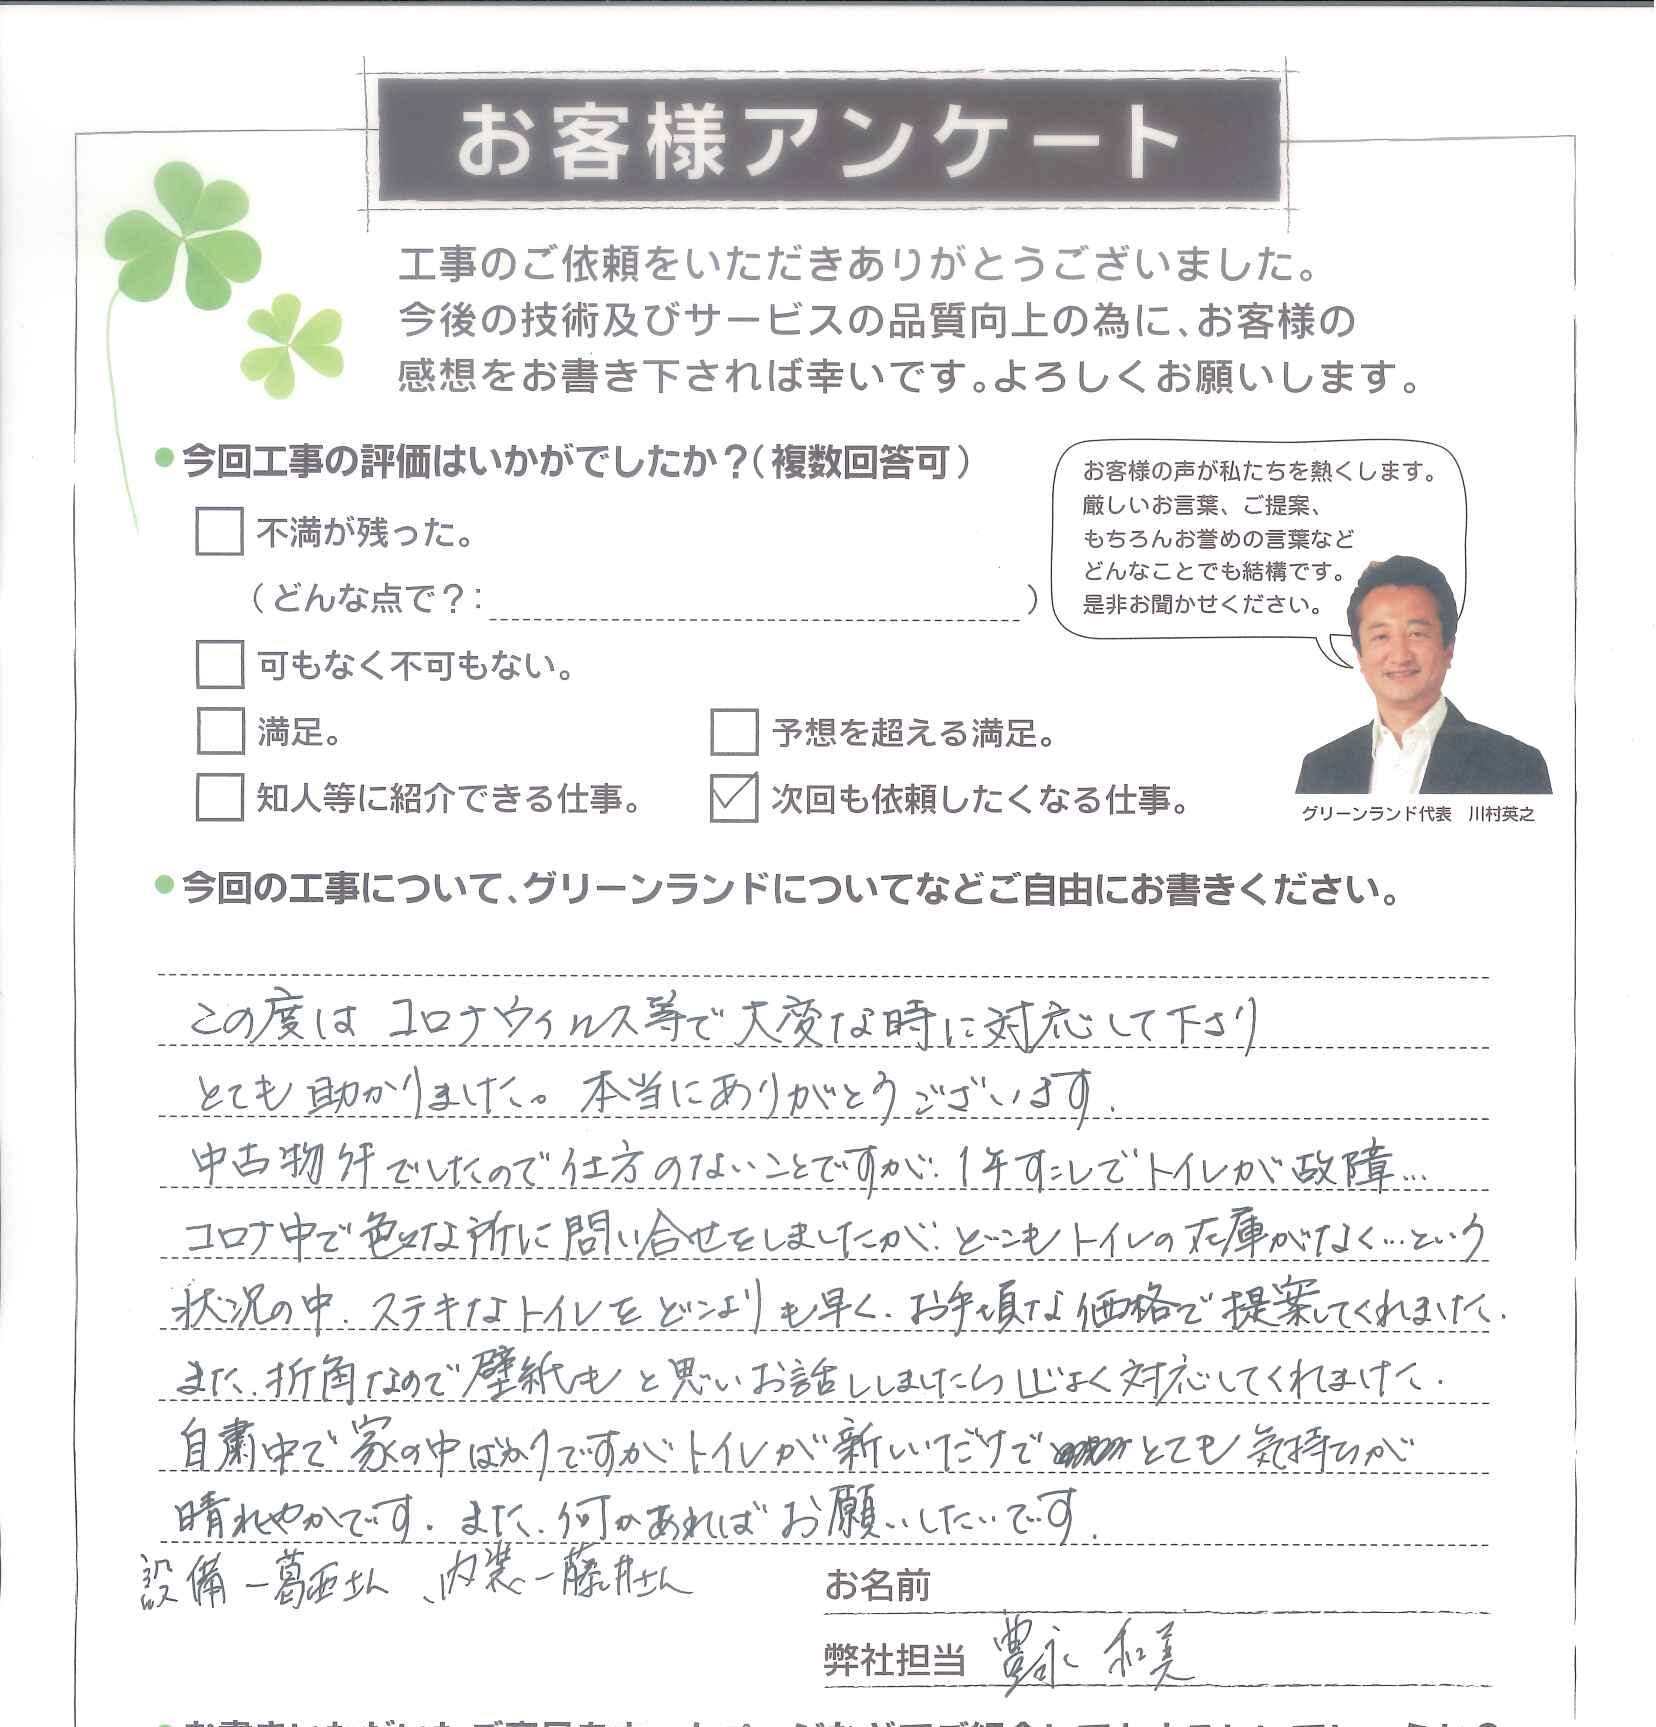 お客様アンケート
工事のご依頼をいただきありがとうございました。
今後の技術及びサービスの品質向上の為に、お客様の
感想をお書き下されば幸いです。よろしくお願いします。
今回工事の評価はいかがでしたか？（複数回答可）
不満が残った。
（どんな点で？：）
可もなく不可もない。
満足。
予想を超える満足。
知人等に紹介できる仕事。
次回も依頼したくなる仕事。
お客様の声が私たちを熱くします。
厳しいお言葉、ご提案、
もちろんお誉めの言葉など
どんなことでも結構です。
是非お聞かせください。
グリーンランド代表　川村英之
今回の工事について、グリーンランドについてなどご自由にお書きください。
この度は コロナウィルス等で大変な時に対応して下さり
とても助かりました。本当にありがとうございます.
中古物件でしたので仕方のないことですが、1年すこしでトイレが故障…
コロナ中で色々な所に問い合せをしましたが、どこもトイレの在庫がなく…という
状況の中、ステキなトイレをどこよりも早く、お手頃な価格で提案してくれました.
また、折角なので壁紙もと思いお話ししましたら 対応してくれました.
自粛中で家の中ばかりですがトイレが新しいだけで とても気持ちが
晴れやかです. また、何かあればお願いしたいです.
設備－葛西さん、内装－藤井さん
お名前
弊社担当 豊永 和美